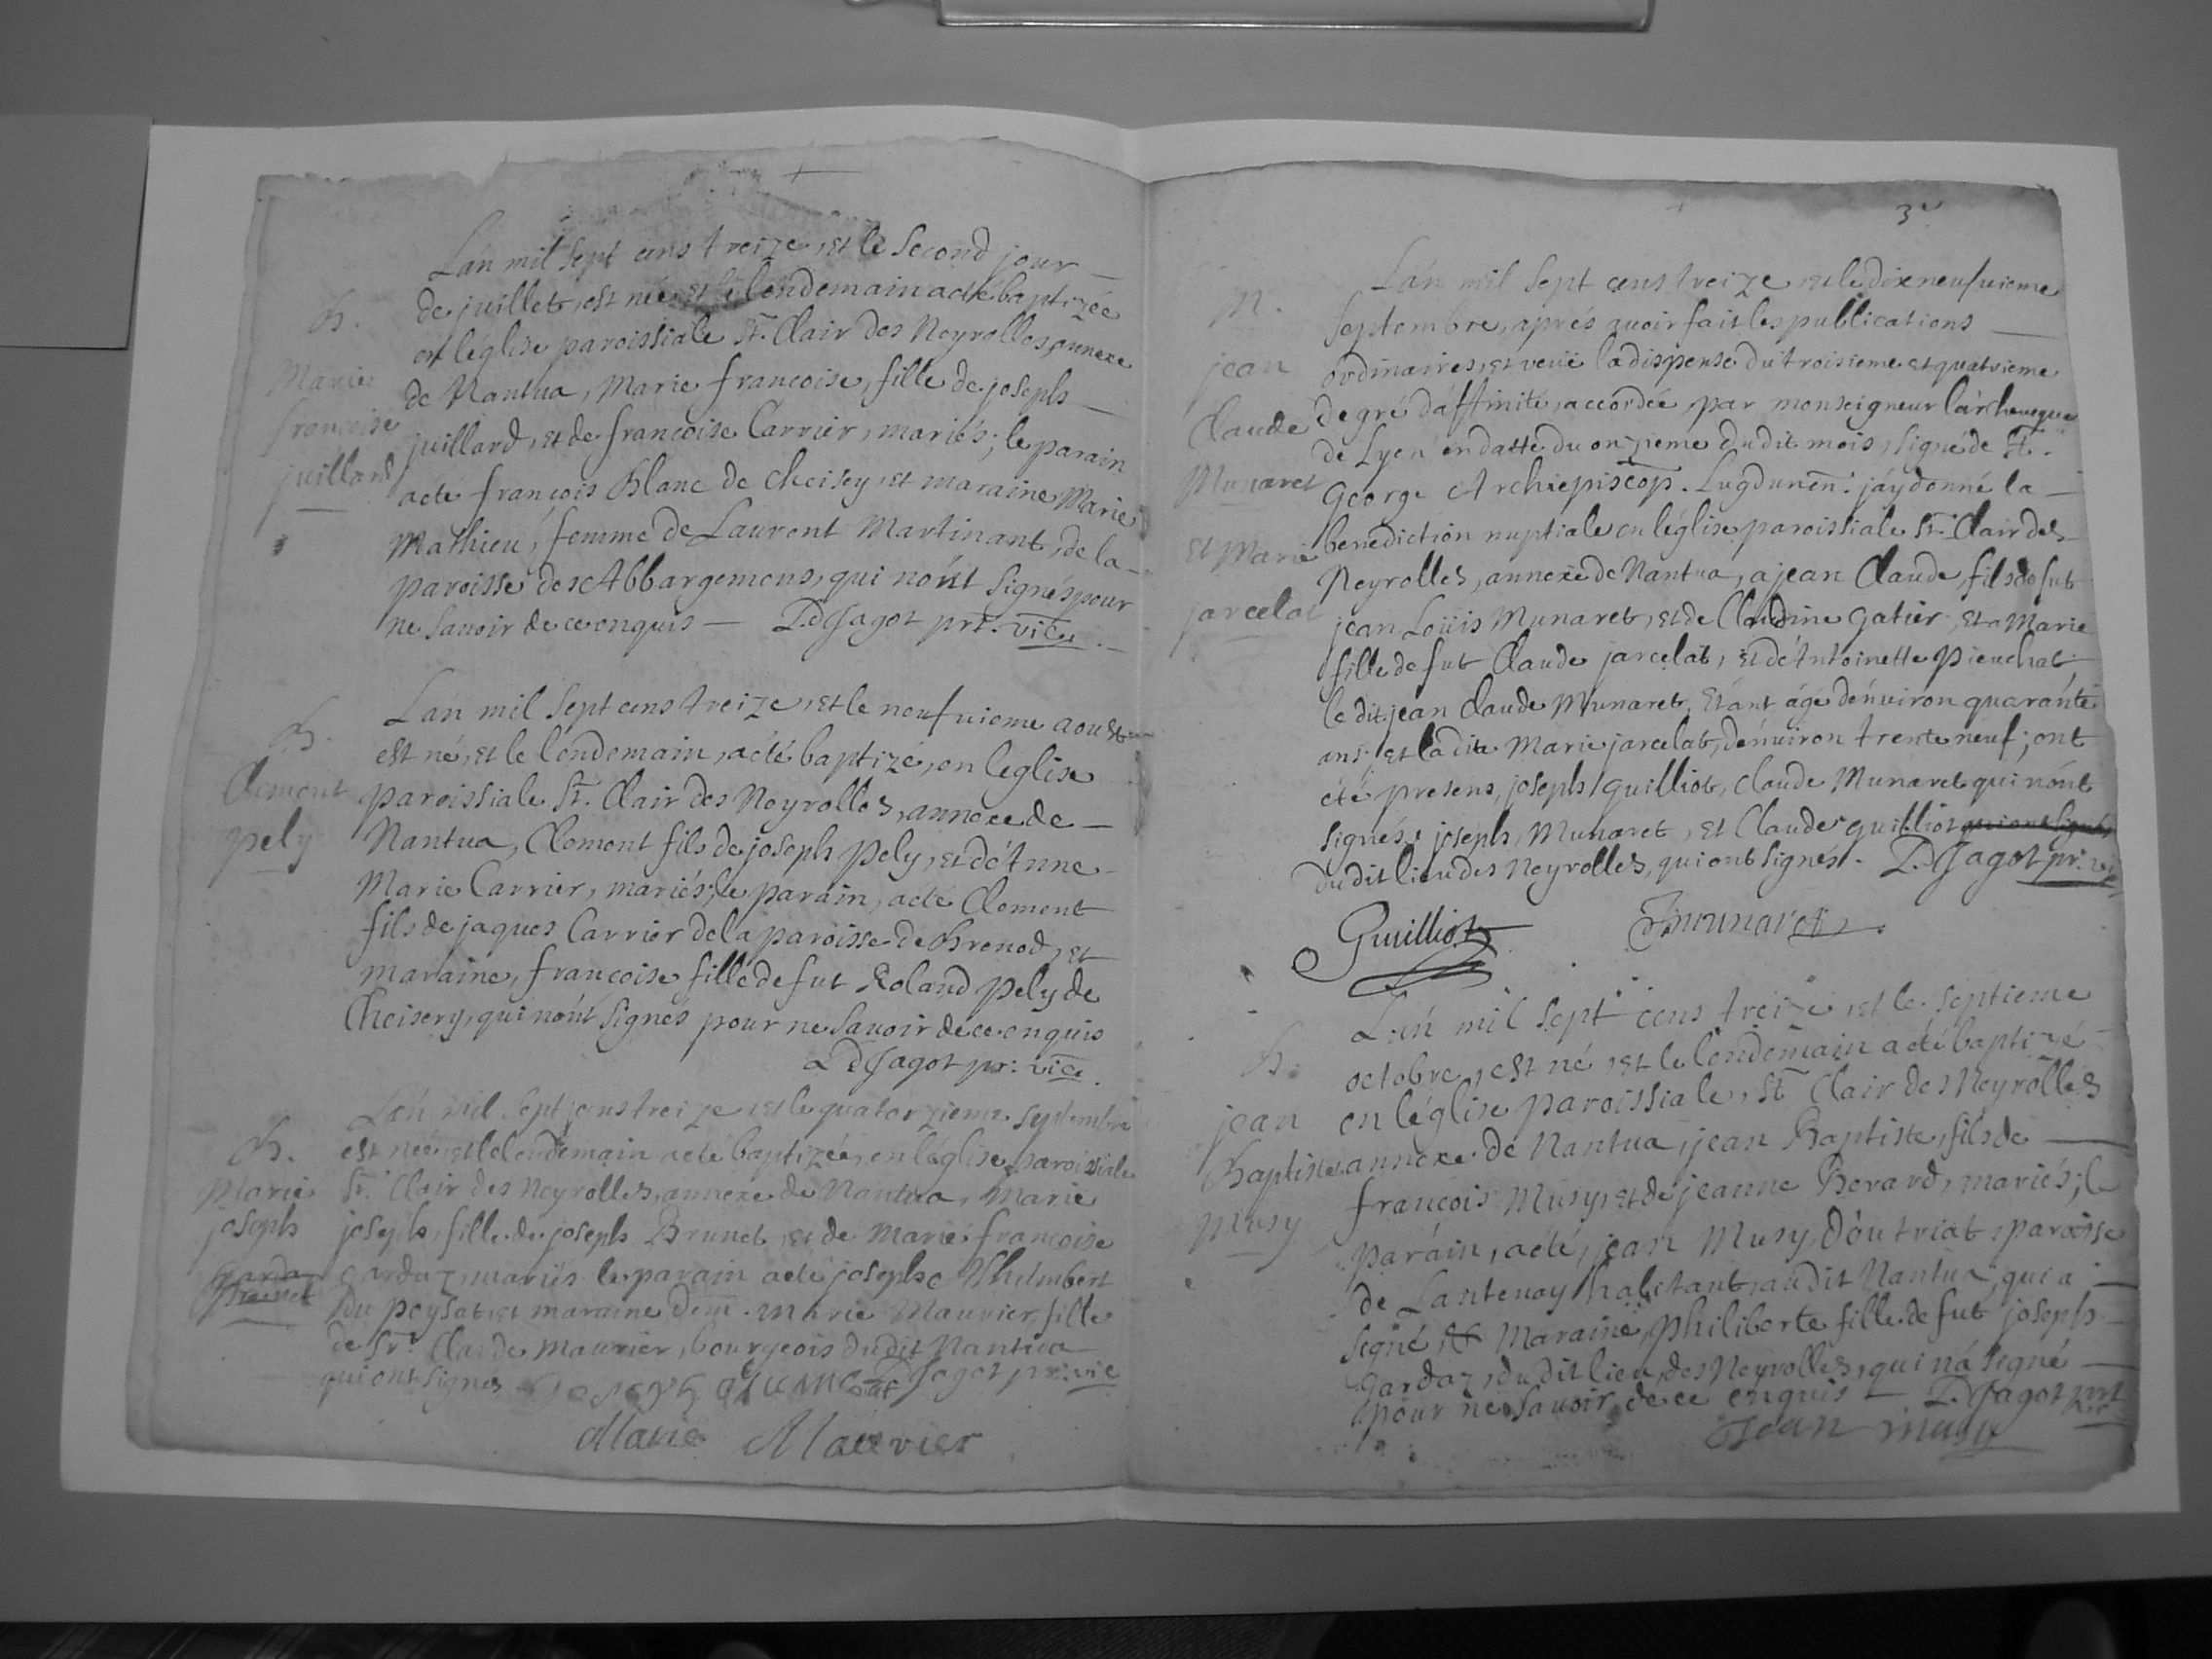 L'an mil sept cens treize, et le second jour
de juillet, est née et le lendemain a eté baptizée
en l'église paroissiale St. Clair des Neyrolles, annexe
de Nantua, Marie francoise, fille de joseph
juillard, et de francoise Carrier, mariés; le parain
a eté françois Blanc de Cheisey, et maraine Marie
Mathieu, femme de Laurent Martinant, de la
paroisse des Abbargemens, qui n'ont signés pour
ne savoir de ce enquis — Jagot prt. vice.
B.
Marie
francoise
juillard
L'an mil sept cens treize, et le neufvieme aoust
est né, et le lendemain, a eté baptizé, en l'eglise
paroissiale St. Clair des Neyrolles, annexe de
Nantua, Clement fils de joseph pely, et d'Anne
Marie Carrier, mariés; le parain, a eté Clement
fils de jaques Carrier de la paroisse de Brenod, et
maraine, francoise fille de fut Roland pely de
Cheisery, qui n'ont signés pour ne savoir de ce enquis
Jagot pr: vice.
B.
Clement
pely
L'an mil sept cens treize et le quatorzieme septembre
est née, et le lendemain a eté baptizée, en l'église paroissiale
St. Clair des Neyrolles, annexe de Nantua, Marie
joseph, fille de joseph Brunet, et de Marie francoise
Gardaz, mariés le parain a eté joseph Humbert
du poysat et maraine dem. Marie Mauvier fille
de Sr. Claude Mauvier, bourgeois dudit Nantua
qui ont signés Jagot pr: vic
Marie Mauvier
B.
Marie
joseph
3e
L'an mil sept cens treize et le dix neufvieme
Septembre, aprés avoir fait les publications
ordinaires, et veüe la dispense du troisieme et quatrieme
degré d'affinité, accordée, par monseigneur l'archeveque
de Lyon en datte du onzieme dudit mois, signé de St.
George Archiepiscop. Lugdunen. j'ay donné la
benediction nuptiale en l'église paroissiale St. Clair des
Neyrolles, annexe de Nantua, a jean Claude, fils de fut
jean Loüis Munaret, et de Claudine Gatier, et a Marie
fille de fut Claude jarcelat, et d'Antoinette Pieuchat,
le dit jean Claude Munaret, étant âgé d'environ quarante
ans; et la dite Marie jarcelat, d'environ trente neuf; ont
eté presens, joseph Guilliot, Claude Munaret qui n'ont
signés, joseph Munaret, et Claude Guilliot qui ont signés
dudit lieu des Neyrolles, qui ont signés. Jagot pr: vic
Guilliot Munaret
M.
jean
Claude
Munaret
et Marie
jarcelat
L'an mil sept cens treize et le septieme
octobre, est né, et le lendemain a eté baptizé
en l'église paroissiale, St. Clair des Neyrolles
annexe de Nantua, jean Baptiste, fils de
françois Musy, et de jeanne Berard, mariés; le
parain, a eté, jean Musy, d'outriat paroisse
de Lantenay habitant audit Nantua, qui a
signé, et Maraine, philiberte fille de fut joseph
Gardaz, dudit lieu, des Neyrolles, qui n'a signé
pour ne savoir de ce enquis — Jagot prt
Jean Musy
B.
jean
Baptiste
Musy